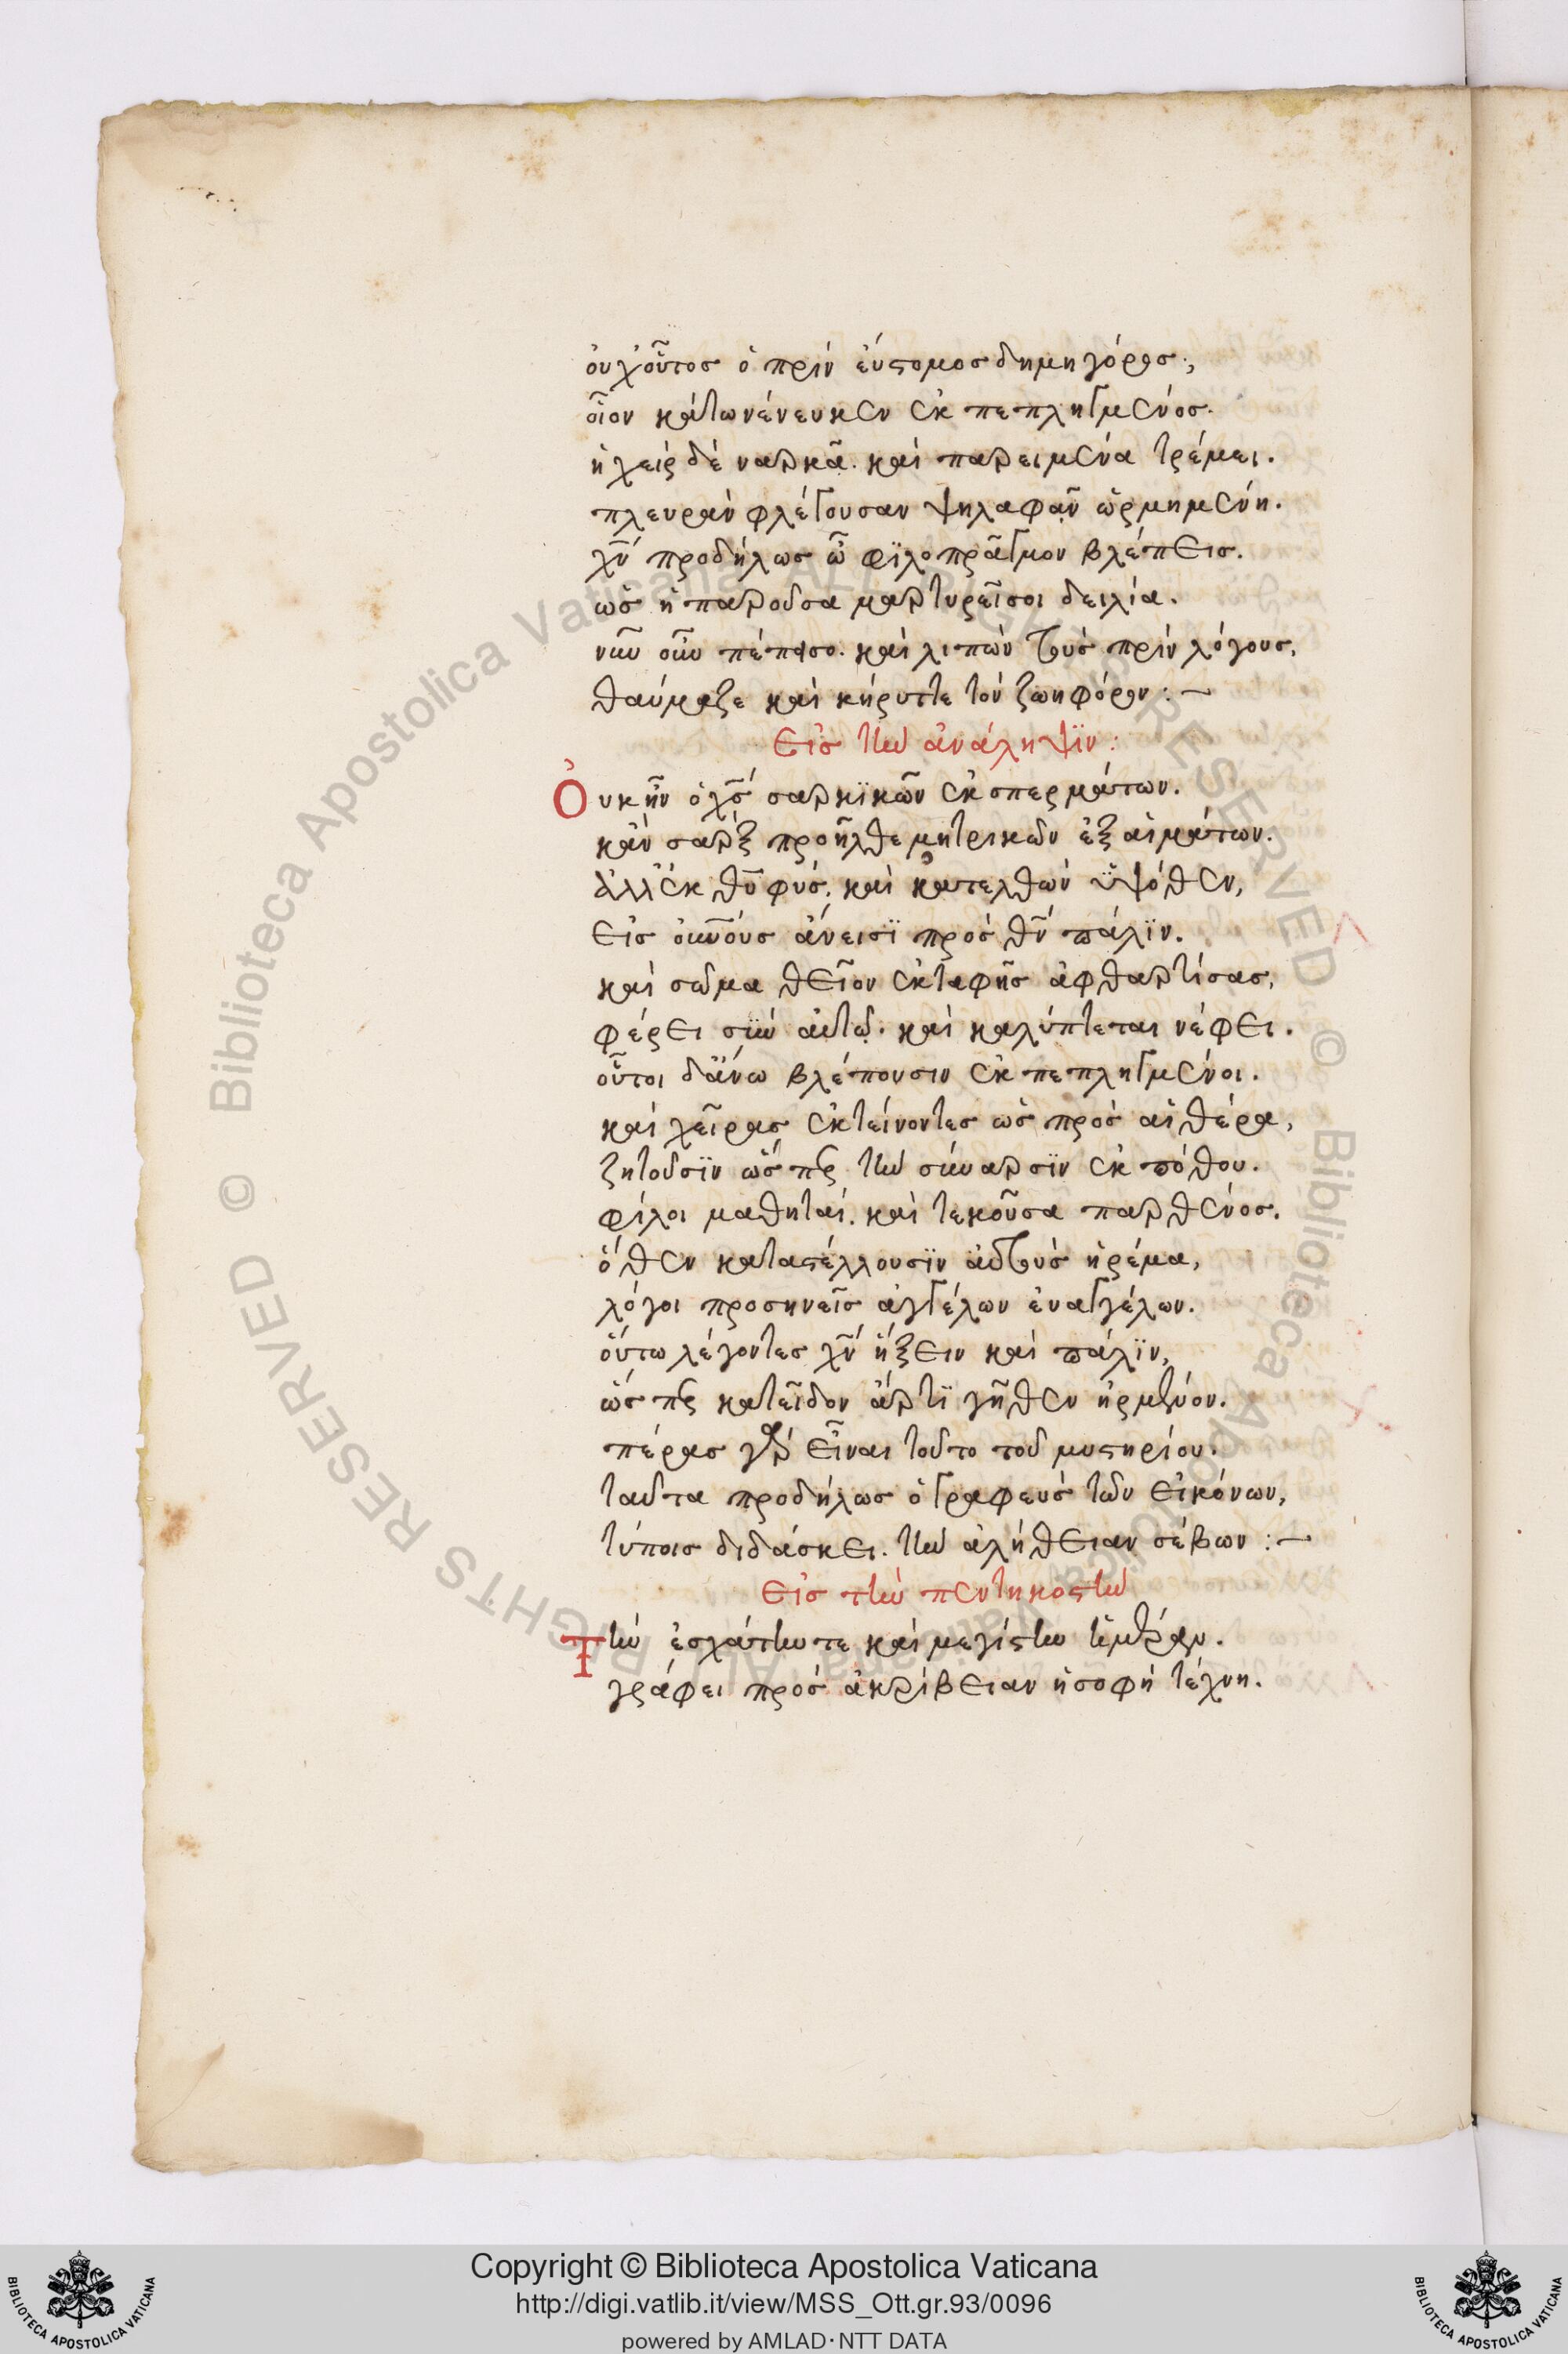 οὐχ οὗτος ὁ πρὶν εὔστομος δημηγόρος;
οἷον κάτω νένευκεν ἐκπεπληγμένος.
ἡ χεὶρ δὲ ναρκᾷ. καὶ παρειμένα τρέμει.
πλευρὰν φλέγουσαν ψηλαφᾶν ὡρμημένη.
χν̅ προδήλως ὦ φϊλοπρᾶγμον βλέπεις.
ὡς ἡ παροῦσα μαρτυρεῖ σοι δειλία.
νῦν οὖν πέπαυσο. καὶ λιπὼν τοὺς πρὶν λόγους,
θαύμαζε καὶ κήρυττε τὸν ζωηφόρον :—
Εἰς τὴν ἀνάληψϊν :
Οὐκ ἦν ὁ χς̅ σαρκϊκῶν ἐκ σπερμάτων.
κἂν σὰρξ προῆλθε μητρικῶν ἐξ αἱμάτων.
ἀλλ' ἐκ θυ̅ φύς. καὶ κατελθὼν ὑψόθεν,
εἰς οὐνοὺς ἄνεισϊ πρὸς θν̅ πάλϊν.
καὶ σῶμα θεῖον ἐκ ταφῆς ἀφθαρτίσας,
φέρει σὺν αὑτῷ. καὶ καλύπτεται νέφει.
οὗτοι δ' ἄνω βλέπουσιν ἐκπεπληγμένοι.
καὶ χεῖρας ἐκτείνοντες ὡς πρὸς αἰθέρα,
ζητοῦσϊν ὥσπερ τὴν σύναρσϊν ἐκ πόθου.
φίλοι μαθηταί. καὶ τεκοῦσα παρθένος.
ὅθεν καταστέλλουσϊν αὐτοὺς ἠρέμα,
λόγοι προσηνεῖς ἀγγέλων εὐαγγέλων.
οὕτω λέγοντες χν̅ ἥξειν καὶ πάλϊν,
ὥσπερ κατεῖδον ἄρτϊ γῆθεν ἠρμένον.
πέρας γὰρ εἶναι τοῦτο τοῦ μυστηρίου.
ταῦτα προδήλως ὁ γραφεὺς τῶν εἰκόνων,
τύποις διδάσκει. τὴν ἀλήθειαν σέβων :—
Εἰς τὴν πεντηκοστὴν
Τὴν ἐσχάτην τε καὶ μεγίστην ἡμέραν.
γράφει πρὸς ἀκρίβειαν ἡ σοφὴ τέχνη.
Copyright © Biblioteca Apostolica Vaticana
http://digi.vatlib.it/view/MSS_Ott.gr.93/0096
powered by AMLAD·NTT DATA
BIBLIOTECA APOSTOLICA VATICANA
BIBLIOTECA APOSTOLICA VATICANA
© Biblioteca Apostolica Vaticana ALL RIGHTS RESERVED © Biblioteca Apostolica Vaticana ALL RIGHTS RESERVED